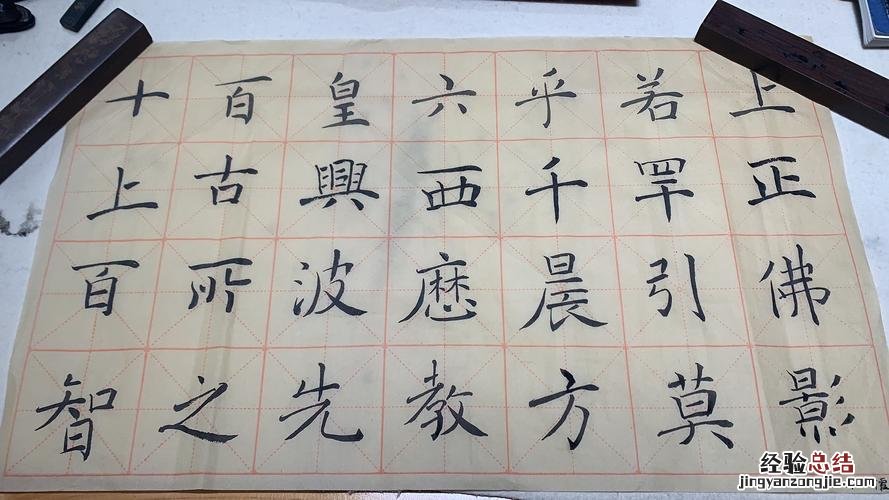 十百皇六乎若上
上古興西千罕正
百所波晨引佛
智之先教方莫影
经验总结
jingyanzongjie.com